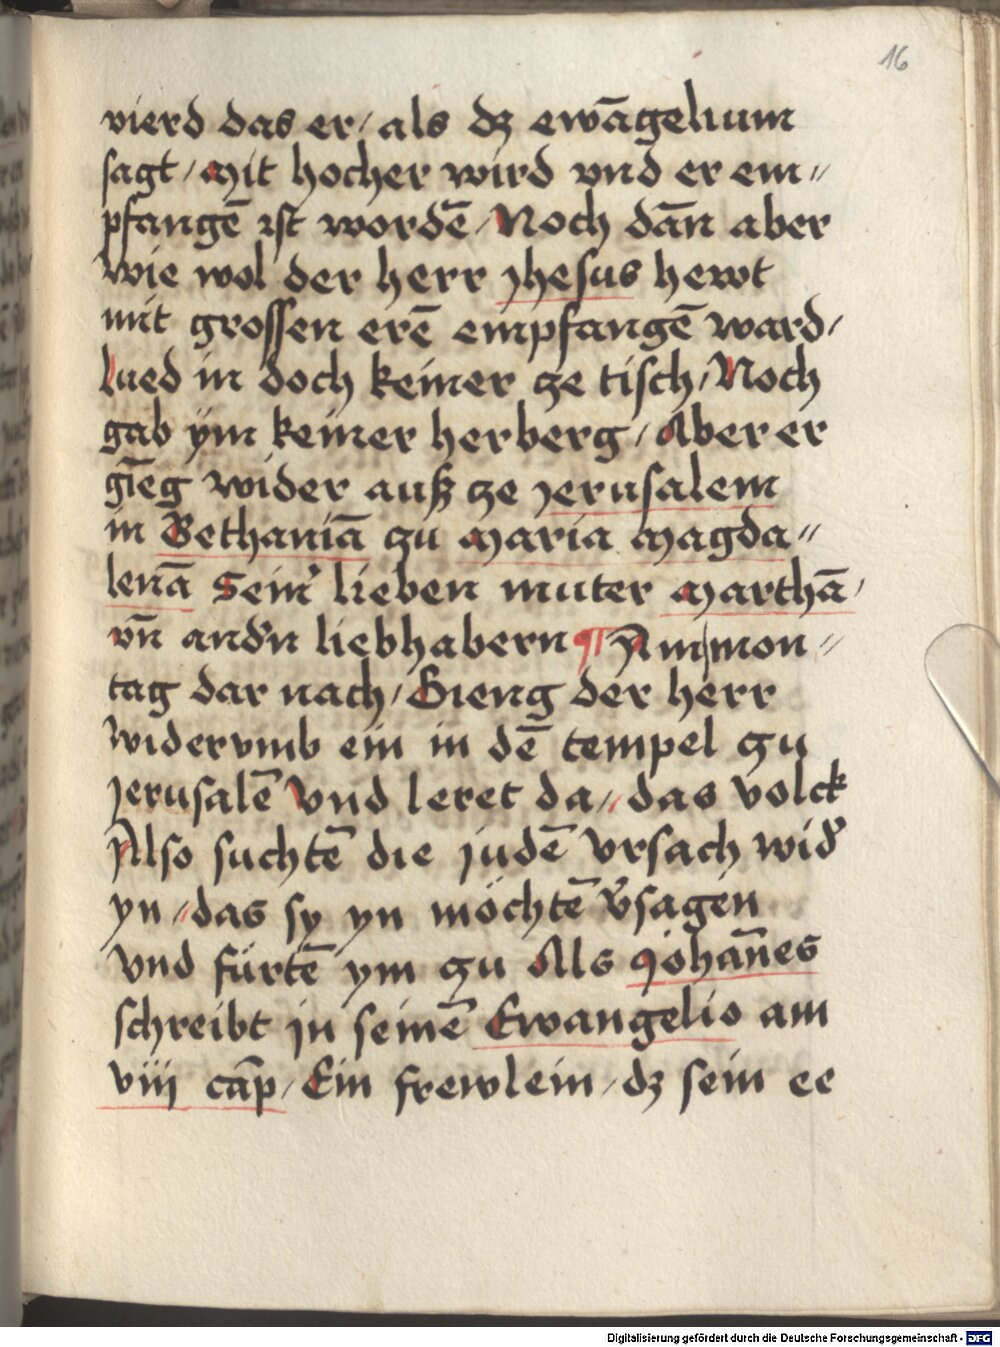 16
vierd das er / als dz ewāgelium
sagt / Mit hocher wird vnd er em〃
pfangē ist wordē / Noch dān aber
wie wol der herr Jhesus hewt
mit grossen erē empfangē ward /
Lued in doch keiner ze tisch / Noch
gab ÿm keiner herberg / Aber er
gīeg wider auß ze Jerusalem
in Bethaniā zu Maria Magda〃
lenā Seinˀ lieben muter Marthā /
vn̄ andˀn liebhabern ¶ Am mon〃
tag dar nach / Gieng der herr
widervmb ein in dē tempel zu
Jerusalē Vnd leret da〃 das volck
Also suchtē die judē Vrsach widˀ
yn〃 das sy yn möchtē vˀsagen
vnd fürtē ym zu Als Johān̄es
schreibt in seinē Ewangelio am
viij cāp / Ein frewlein / dz sein ee
Digitalisierung gefördert durch die Deutsche Forschungsgemeinschaft - DFG